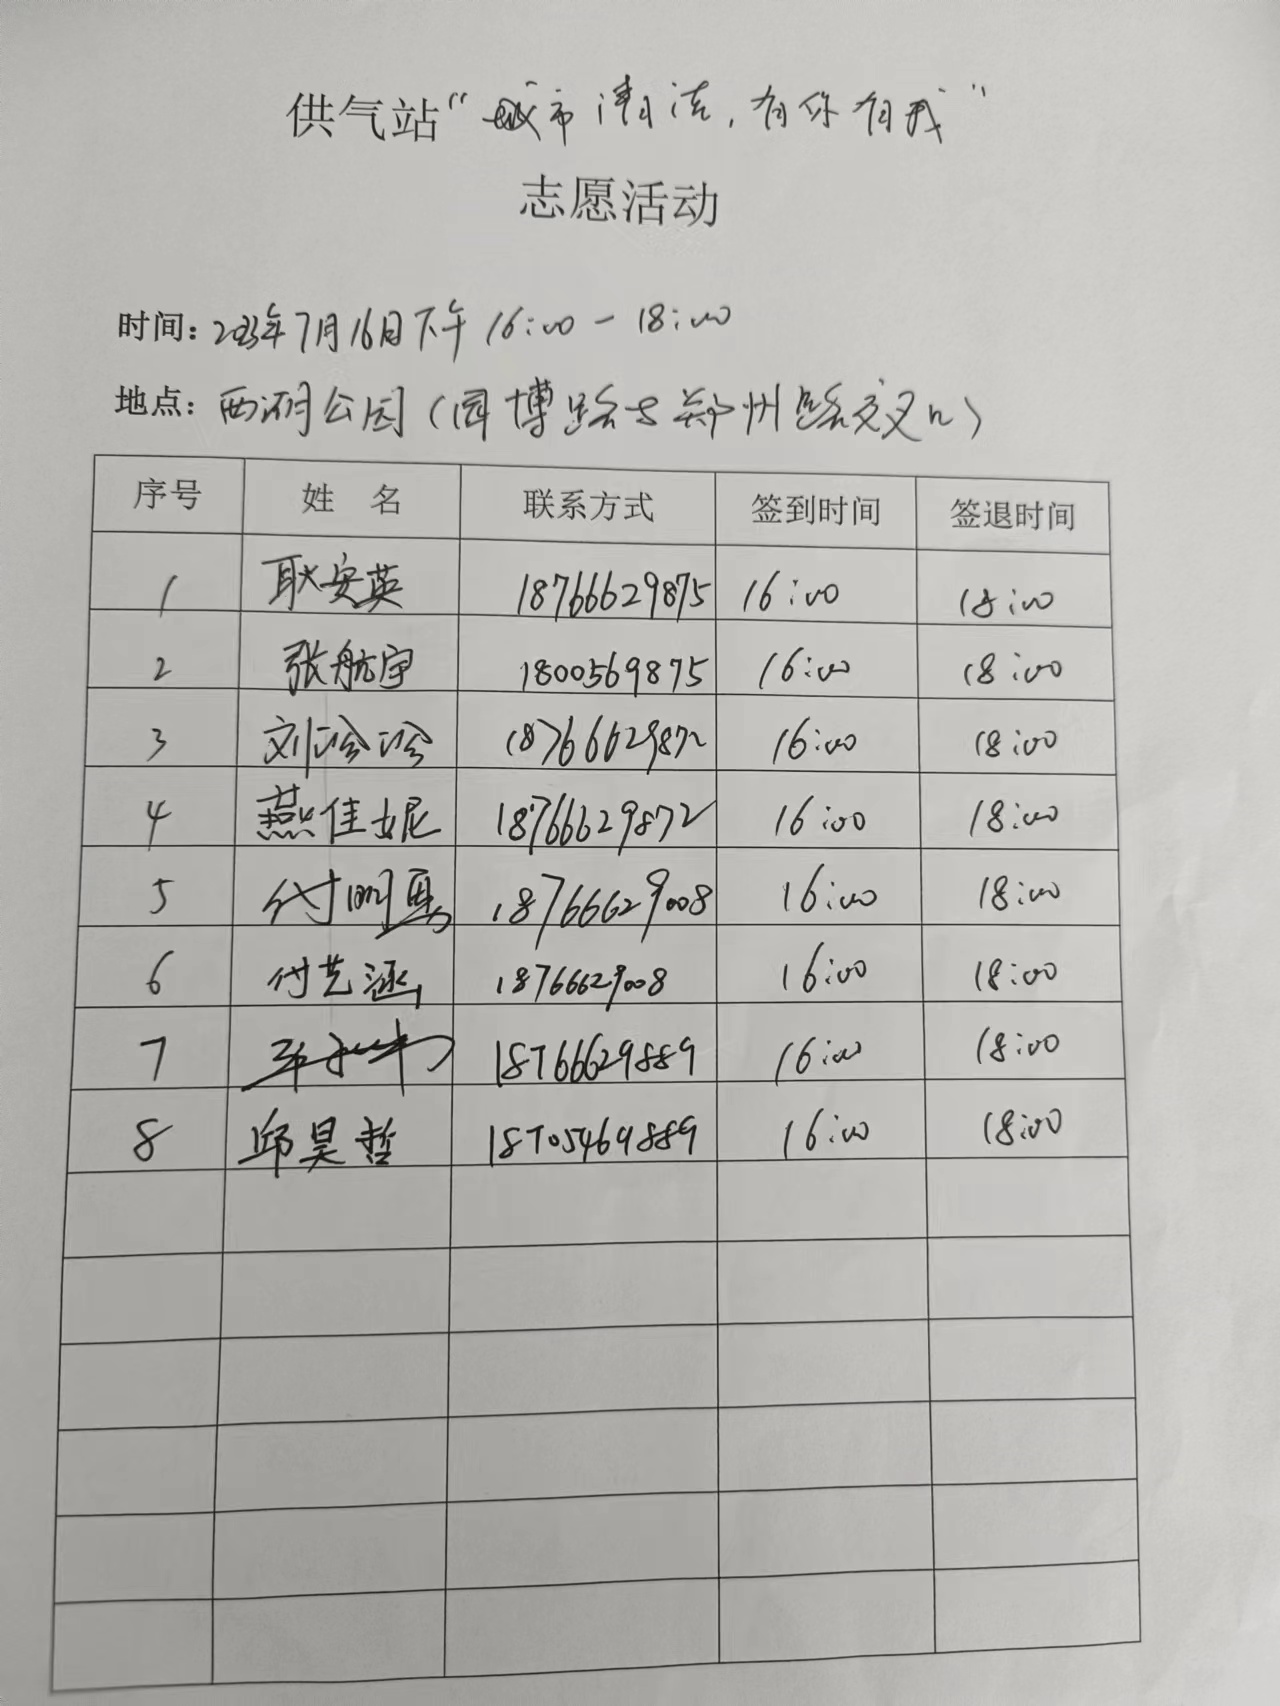 供气站“城市清洁，有你有我”
志愿活动
时间：2023年7月16日下午 16:00 - 18:00
地点：西湖公园（园博路与郑州路交叉口）
序号 姓 名 联系方式 签到时间 签退时间
1 耿安英 18766629875 16:00 18:00
2 张航宇 1800569875 16:00 18:00
3 刘冷冷 18766629872 16:00 18:00
4 燕佳妮 18766629872 16:00 18:00
5 付明 18766629008 16:00 18:00
6 付艺涵 18766629008 16:00 18:00
7 18766629889 16:00 18:00
8 邱昊哲 18705469889 16:00 18:00